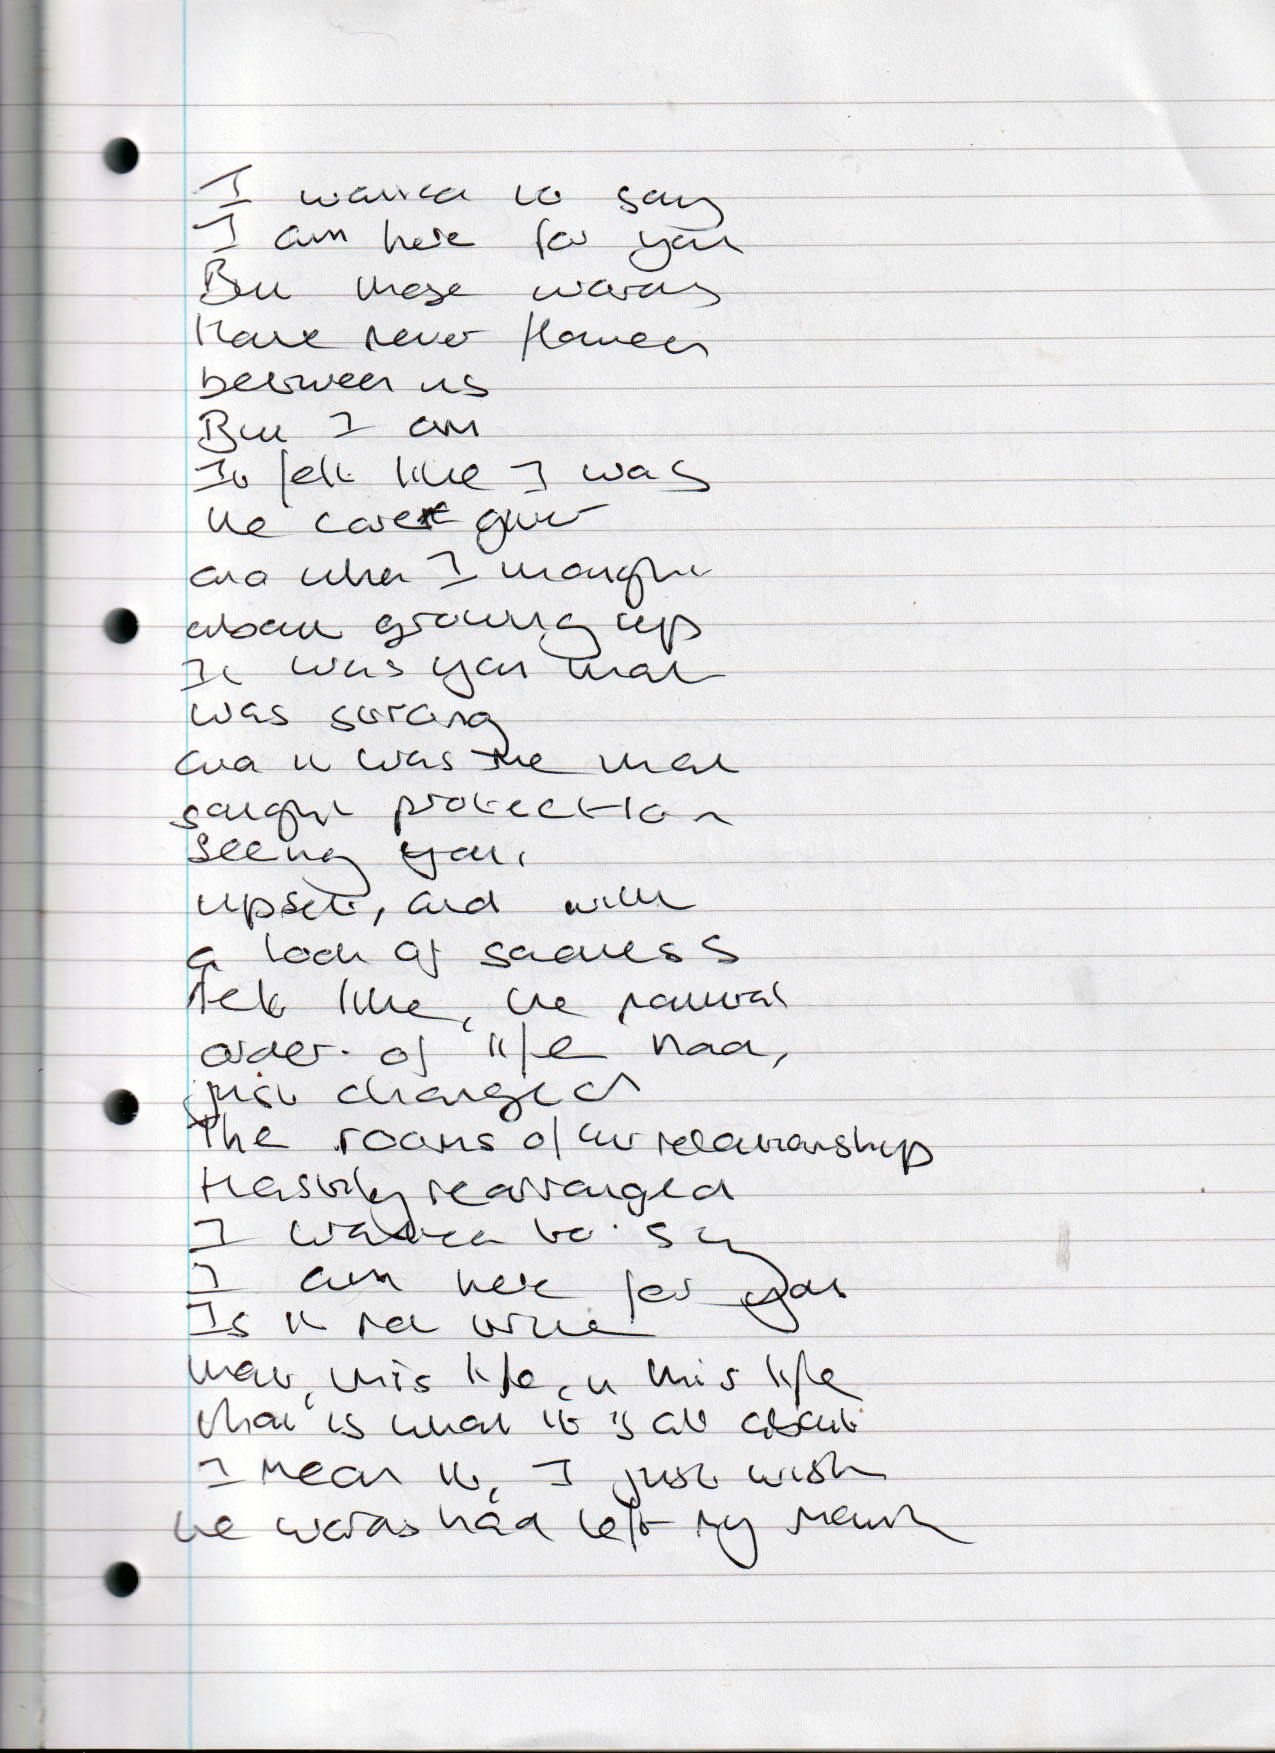 I wanted to say
I am here for you
But these words
Have never flowed
between us
But I am
It felt like I was
the care giver
and when I thought
about growing up
It was you that
was strong
and it was me that
sought protection
seeing you,
upset, and with
a look of sadness
felt like, the natural
order of life had,
just changed
The rooms of our relationship
Hastily rearranged
I wanted to say
I am here for you
Is it not true
that, this life, in this life
that is what it is all about
I mean it, I just wish
the words had left my mouth